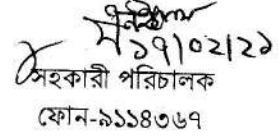 ১৭/০২/২১
সহকারী পরিচালক
ফোন-৯১১৪৩৬৭